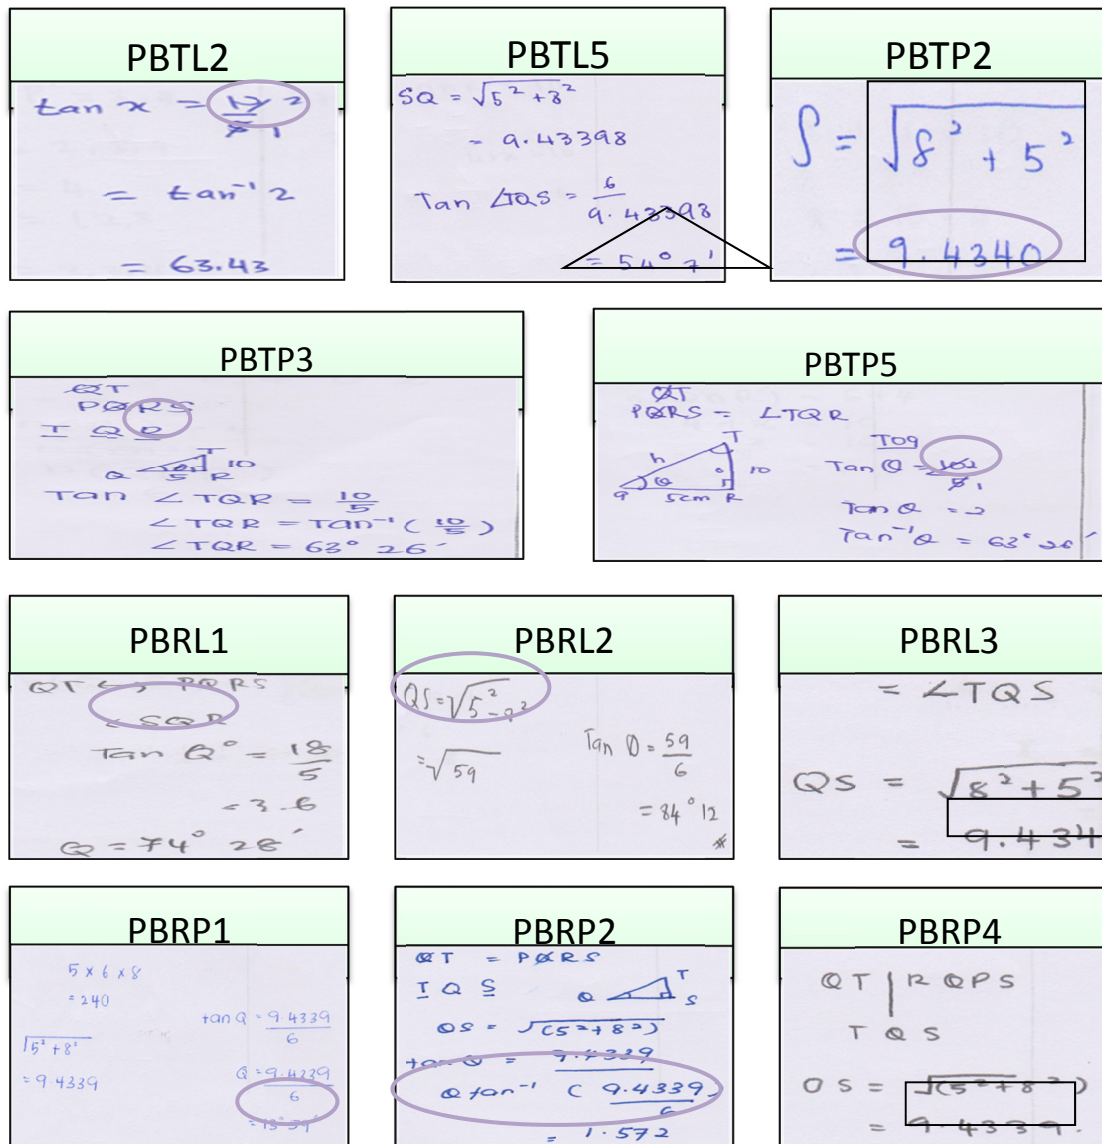 PBTL2
tan x = 10 2
5 1
= tan⁻¹ 2
= 63.43
PBTL5
SQ = √5² + 8²
= 9.43398
Tan ∠TQS = 6
9.43398
= 54° 7'
PBTP2
S = √8² + 5²
= 9.4340
PBTP3
QT
PQRS
T Q R
T
Q 5 R 10
Tan ∠TQR = 10/5
∠TQR = Tan⁻¹ (10/5)
∠TQR = 63° 26'
PBTP5
QT
PQRS = ∠TQR
T
h
θ
10
Q 5cm R
TOA
Tan θ = 10 2
5 1
Tan θ = 2
Tan⁻¹ θ = 63° 26'
PBRL1
QT ↔ PQRS
∠ SQR
Tan Q° = 18
5
= 3.6
Q = 74° 28'
PBRL2
QS = √5² - 8²
= √59
Tan θ = 59
6
= 84° 12
PBRL3
= ∠TQS
QS = √8² + 5²
= 9.434
PBRP1
5 × 6 × 8
= 240
√5² + 8²
= 9.4339
tan Q = 9.4339
6
Q = 9.4339
6
PBRP2
QT = PQRS
T Q S
T
Q S
QS = √(5² + 8²)
tan θ = 9.4339
θ tan⁻¹ ( 9.4339
6
= 1.572
PBRP4
QT | RQPS
T Q S
QS = √(5² + 8²)
= 9.4339.